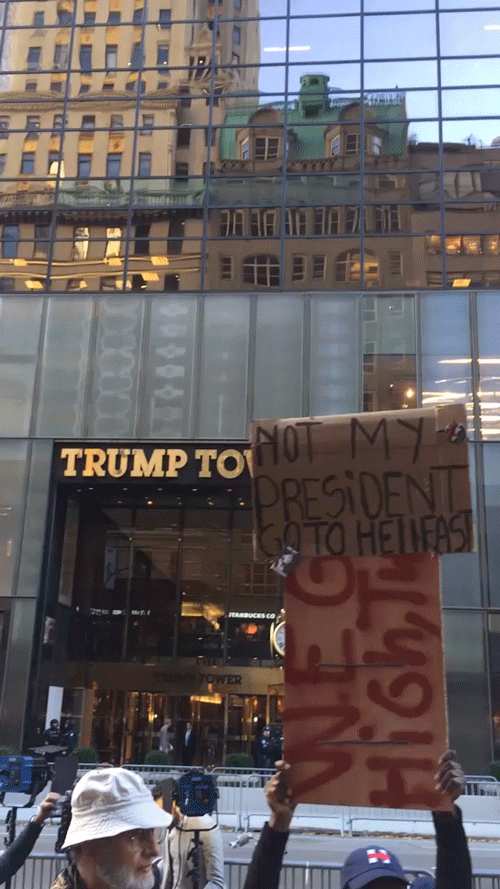 TRUMP TO
NOT MY
PRESiDENT
GO TO HELL FAST
WE G
HiGH
STARBUCKS CO
TRUMP TOWER